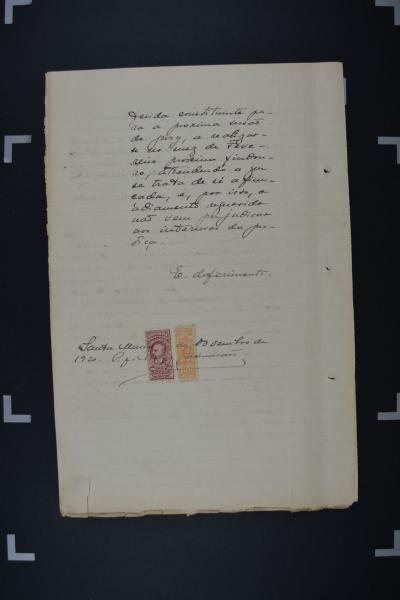 derida constituinte pa-
ra a proxima sessão
do jury, a realizar-
se no mez de Feve-
reiro proximo vindou-
ro, attendendo a que
se trata de ré afian-
çada, e, por isso, o
adiamento requerido
não vem prejudicar
aos interesses da jus-
tiça.
E. deferimento.
Santa Maria, de
192